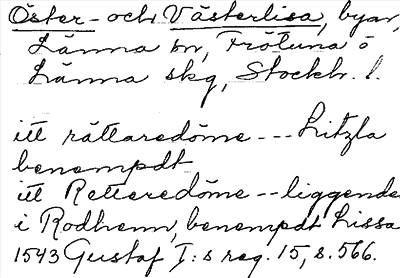 Öster- och Västerlisa, byar,
Länna sn, Frötuna o
Länna skg, Stockh. l.
itt rättaredöme --- Litzla
benempdt
itt Retteredöme -- liggende
i Rodhenn, benempdt Lissa
1543 Gustaf I:s reg. 15, s. 566.